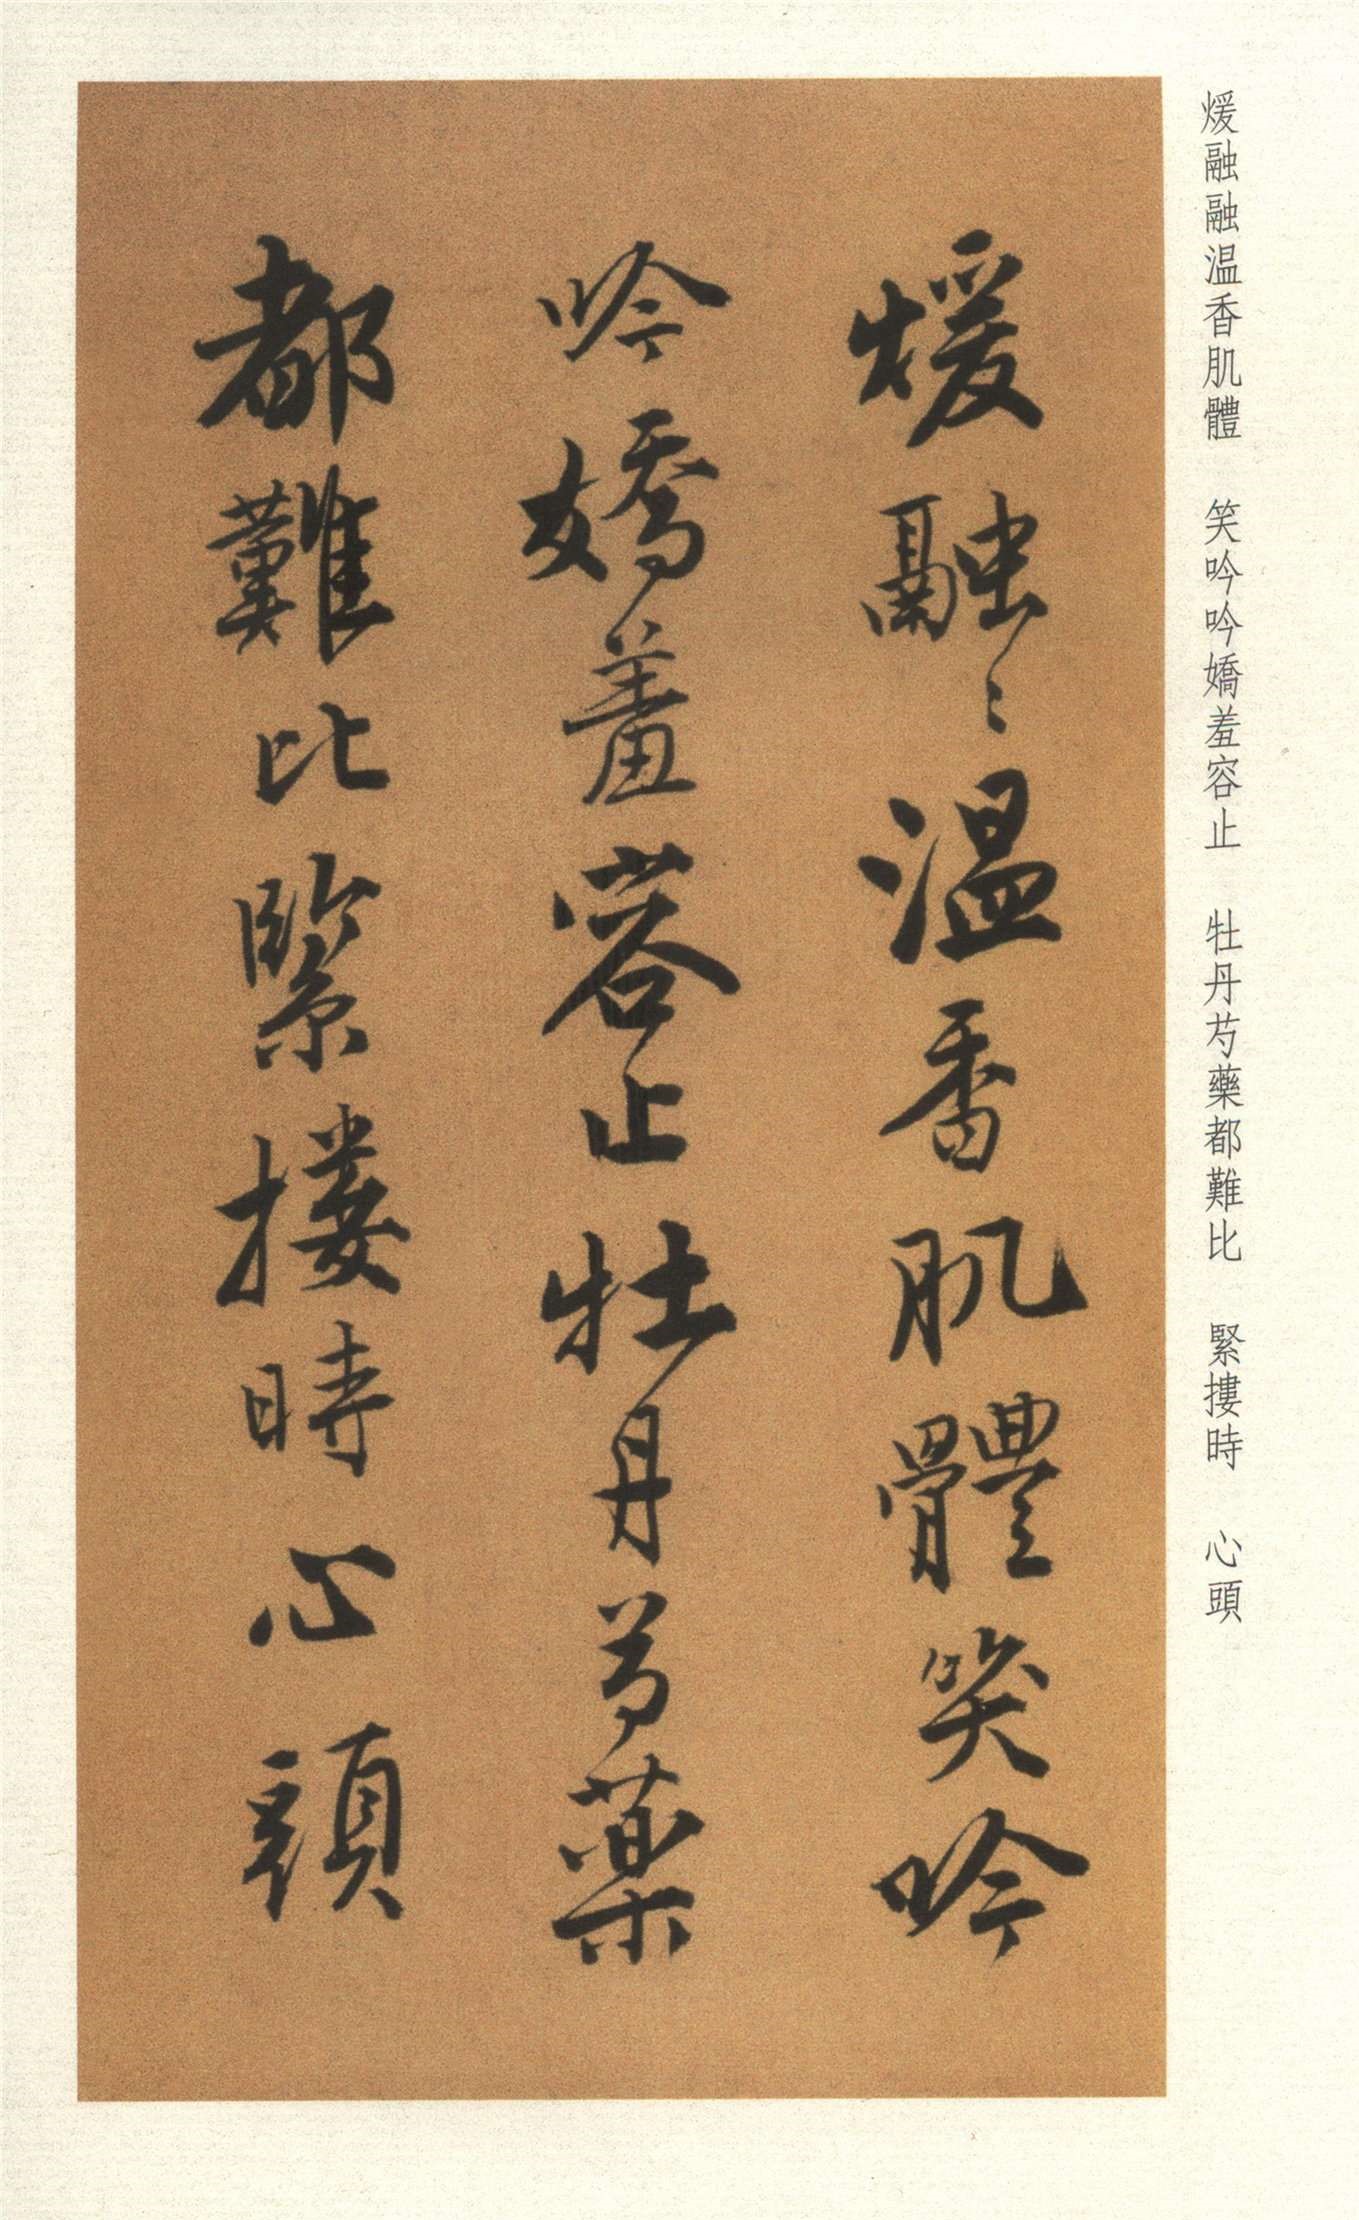 煖融融温香肌體　笑吟吟嬌羞容止　牡丹芍藥都難比　緊摟時　心頭
煖融〻温香肌體笑吟
吟嬌羞容止牡丹芍藥
都難比緊摟時心頭